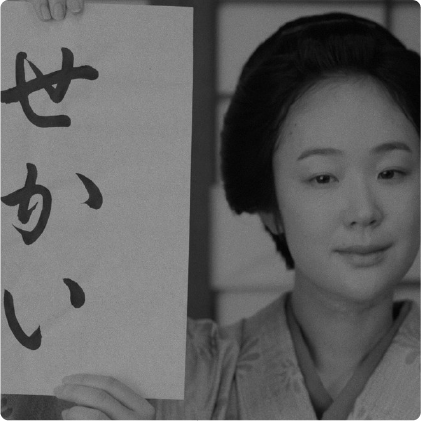 せかい